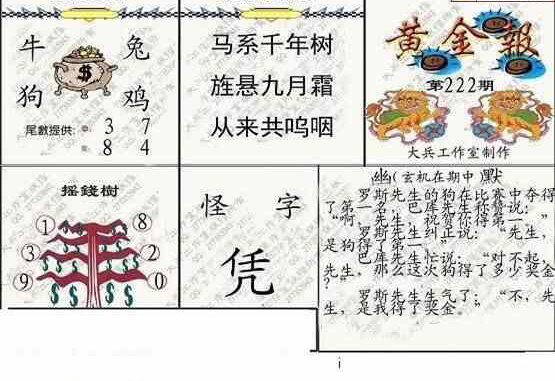 牛 兔
狗 鸡
$
尾數提供: 3 7
8 4
马系千年树
旌悬九月霜
从来共呜咽
黄金報
第222期
大兵工作室制作
摇錢樹
1 8
3 2
9 0
怪 字
凭
幽(玄机在期中)默
罗斯先生的狗在比赛中夺得
了第一名，巴库先生称赞说：
"啊，先生，祝贺你得第一。"
罗斯先生纠正说："先生，
是狗得了第一。"
巴库先生忙说："对不起，
先生，那么这次狗得了多少奖金
？"
罗斯先生生气了："不，先
生，是我得了奖金。"
i